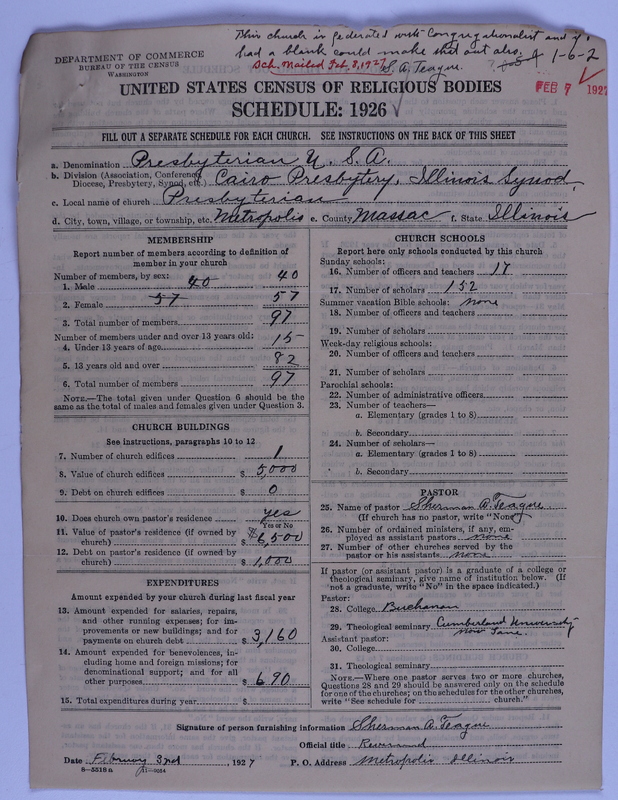 This church is federated with Congregationalist and if I
had a blank could make that out also.
S. A. Teague.
Sch. mailed Feb. 8, 1927
1-6-2
FEB 7 1927
DEPARTMENT OF COMMERCE
BUREAU OF THE CENSUS
WASHINGTON
UNITED STATES CENSUS OF RELIGIOUS BODIES
SCHEDULE: 1926
FILL OUT A SEPARATE SCHEDULE FOR EACH CHURCH. SEE INSTRUCTIONS ON THE BACK OF THIS SHEET
a. Denomination Presbyterian U. S. A.
b. Division (Association, Conference, Diocese, Presbytery, Synod, etc.) Cairo Presbytery, Illinois Synod,
c. Local name of church Presbyterian
d. City, town, village, or township, etc. Metropolis e. County Massac f. State Illinois
MEMBERSHIP
Report number of members according to definition of
member in your church
Number of members, by sex:
1. Male 40 40
2. Female 57 57
3. Total number of members 97
Number of members under and over 13 years old:
4. Under 13 years of age 15
5. 13 years old and over 82
6. Total number of members 97
NOTE.—The total given under Question 6 should be
same as the total of males and females given under Question 3.
CHURCH BUILDINGS
See instructions, paragraphs 10 to 12
7. Number of church edifices 1
8. Value of church edifices $ 5,000
9. Debt on church edifices $ 0
10. Does church own pastor's residence yes
Yes or No
11. Value of pastor's residence (if owned by
church) $ 6,500
12. Debt on pastor's residence (if owned by
church) $ 1,000
EXPENDITURES
Amount expended by your church during last fiscal year
13. Amount expended for salaries, repairs,
and other running expenses; for im-
provements or new buildings; and for
payments on church debt $ 3,160
14. Amount expended for benevolences, in-
cluding home and foreign missions; for
denominational support; and for all
other purposes $ 690
15. Total expenditures during year $
CHURCH SCHOOLS
Report here only schools conducted by this church
Sunday schools:
16. Number of officers and teachers 17
17. Number of scholars 152
Summer vacation Bible schools: none
18. Number of officers and teachers
19. Number of scholars
Week-day religious schools:
20. Number of officers and teachers
21. Number of scholars
Parochial schools:
22. Number of administrative officers
23. Number of teachers—
a. Elementary (grades 1 to 8)
b. Secondary
24. Number of scholars—
a. Elementary (grades 1 to 8)
b. Secondary
PASTOR
25. Name of pastor Sherman A. Teague
(If church has no pastor, write "None")
26. Number of ordained ministers, if any, em-
ployed as assistant pastors none
27. Number of other churches served by the
pastor or his assistants none
If pastor (or assistant pastor) is a graduate of a college or
theological seminary, give name of institution below. (If
not a graduate, write "No" in the space indicated.)
Pastor:
28. College Buchanan
29. Theological seminary Cumberland University
now Lane.
Assistant pastor:
30. College
31. Theological seminary
NOTE.—Where one pastor serves two or more churches,
Questions 28 and 29 should be answered only on the schedule
for one of the churches; on the schedules for the other churches,
write "See schedule for church."
Signature of person furnishing information Sherman A. Teague
Official title Reverend
Date February 3rd, 1927 P. O. Address Metropolis Illinois
8—5518a